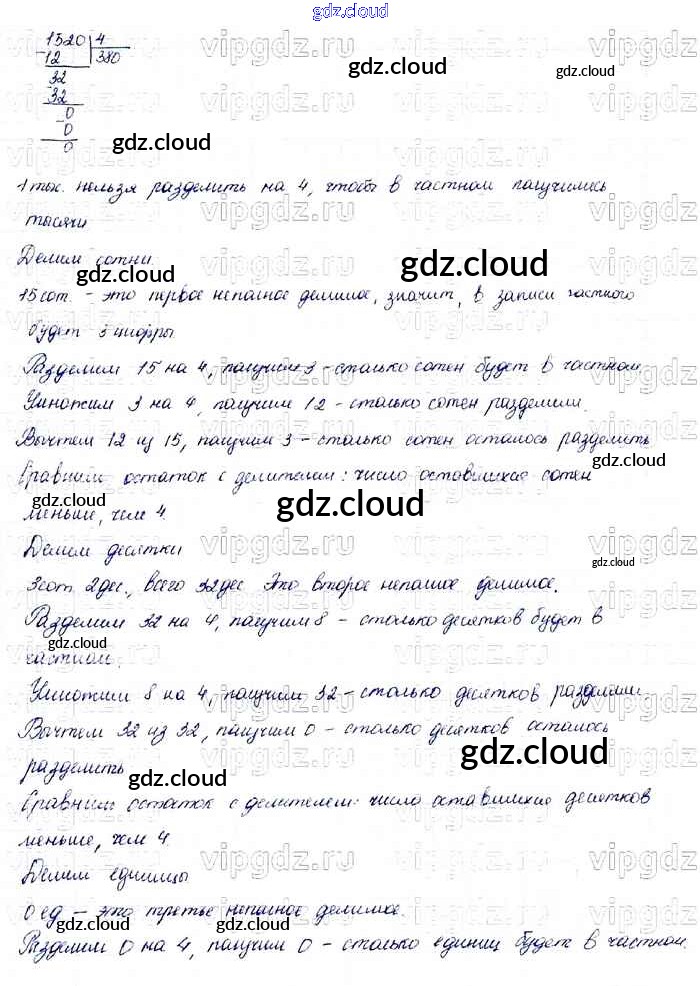 gdz.cloud
1520 4
12 380
32
32
0
0
0
1 тыс. нельзя разделить на 4, чтобы в частном получились
тысячи
Делим сотни.
15 сот. - это первое неполное делимое, значит, в записи частного
будет 3 цифры.
Разделим 15 на 4, получим 3 - столько сотен будет в частном.
Умножим 3 на 4, получим 12 - столько сотен разделили.
Вычтем 12 из 15, получим 3 - столько сотен осталось разделить
Сравним остаток с делителем: число оставшихся сотен
меньше, чем 4.
Делим десятки
3сот. 2дес., всего 32дес Это второе неполное делимое.
Разделим 32 на 4, получим 8 - столько десятков будет в
частном.
Умножим 8 на 4, получим 32 - столько десятков разделили.
Вычтем 32 из 32, получим 0 - столько десятков осталось
разделить
Сравним остаток с делителем: число оставшихся десятков
меньше, чем 4.
Делим единицы
0 ед - это третье неполное делимое.
Разделим 0 на 4, получим 0 - столько единиц будет в частном.